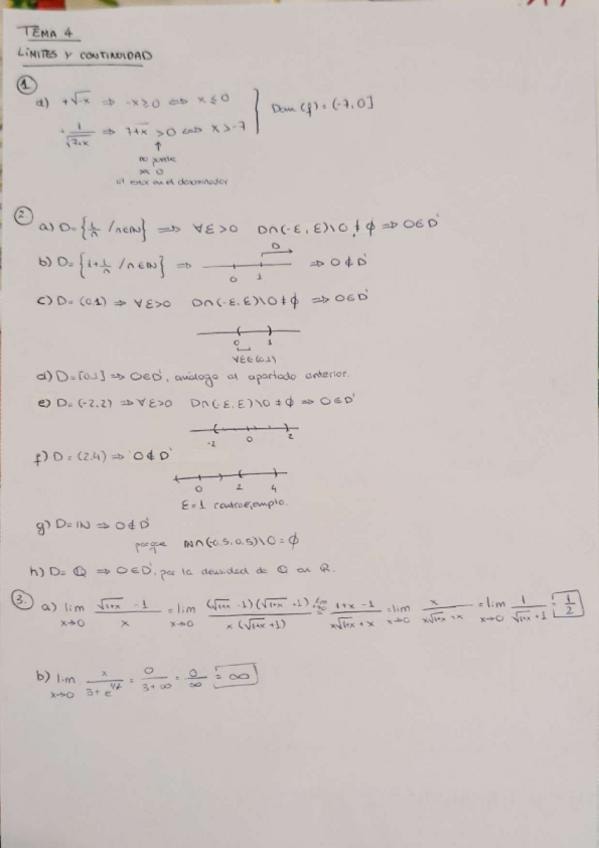 TEMA 4
LÍMITES Y CONTINUIDAD
1.
a) +√-x ⇒ -x ≥ 0 ⇔ x ≤ 0
+ 1/√7+x ⇒ 7+x > 0 ⇔ x > -7 } Dom (f) = (-7, 0]
↑
no puede
ser 0
al estar en el denominador
2. a) D = {1/n / n∈ℕ} ⇒ ∀ε>0 D∩(-ε, ε)\0 ≠ ∅ ⇒ 0∈D'
b) D = {1+1/n / n∈ℕ} ⇒ 0 1 D ⇒ 0∉D'
c) D = (0,1) ⇒ ∀ε>0 D∩(-ε, ε)\0 ≠ ∅ ⇒ 0∈D'
0 1
∀ε∈(0,1)
d) D = [0,1] ⇒ 0∈D', análogo al apartado anterior.
e) D = (-2,2) ⇒ ∀ε>0 D∩(-ε, ε)\0 ≠ ∅ ⇒ 0∈D'
-2 0 2
f) D = (2,4) ⇒ 0∉D'
0 2 4
ε=1 contraejemplo.
g) D = ℕ ⇒ 0∉D'
porque ℕ∩(-0.5, 0.5)\0 = ∅
h) D = ℚ ⇒ 0∈D', por la densidad de ℚ en ℝ.
3. a) lim x→0 (√1+x - 1)/x = lim x→0 (√1+x - 1)(√1+x + 1)/x(√1+x + 1) = lim x→0 (1+x-1)/(x√1+x + x) = lim x→0 x/(x√1+x + x) = lim x→0 1/(√1+x + 1) = 1/2
b) lim x→0 x/(3+e^1/x) = 0/(3+∞) = 0/∞ = ∞